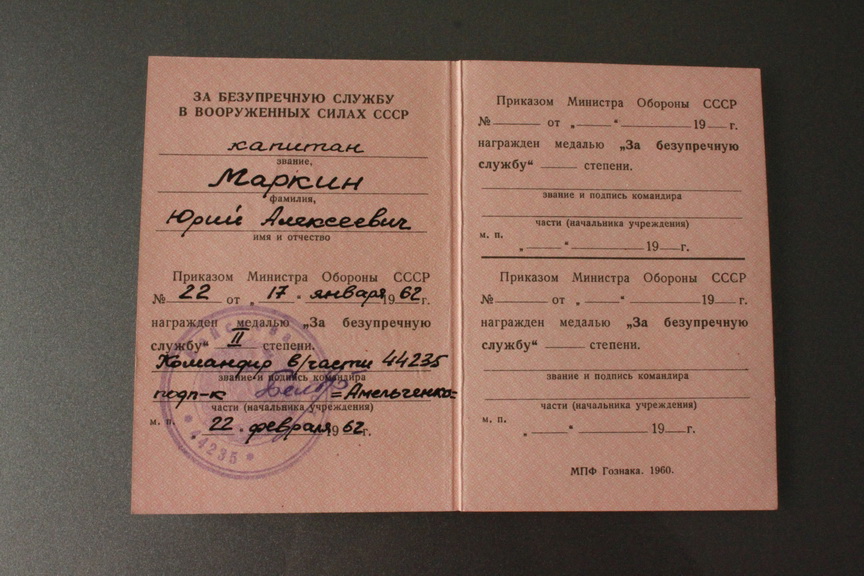 ЗА БЕЗУПРЕЧНУЮ СЛУЖБУ
В ВООРУЖЕННЫХ СИЛАХ СССР
капитан
звание,
Маркин
фамилия,
Юрий Алексеевич
имя и отчество
Приказом Министра Обороны СССР
№ 22 от „ 17 " января 1962 г.
награжден медалью „За безупречную
службу“ II степени.
Командир в/части 44235
звание и подпись командира
подп-к =Амельченко=
части (начальника учреждения)
м. п.
22. февраля 1962 г.
44235
Приказом Министра Обороны СССР
№ от „ “ 19 г.
награжден медалью „За безупречную
службу“ степени.
звание и подпись командира
части (начальника учреждения)
м. п.
„ “ 19 г.
Приказом Министра Обороны СССР
№ от „ “ 19 г.
награжден медалью „За безупречную
службу“ степени.
звание и подпись командира
части (начальника учреждения)
м. п.
„ “ 19 г.
МПФ Гознака. 1960.